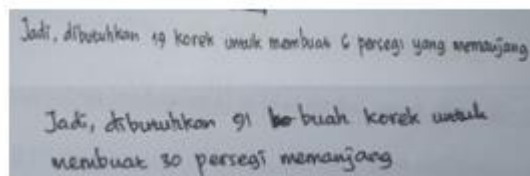 Jadi, dibutuhkan 19 korek untuk membuat 6 persegi yang memanjang
Jadi, dibutuhkan 91 buah korek untuk
membuat 30 persegi memanjang